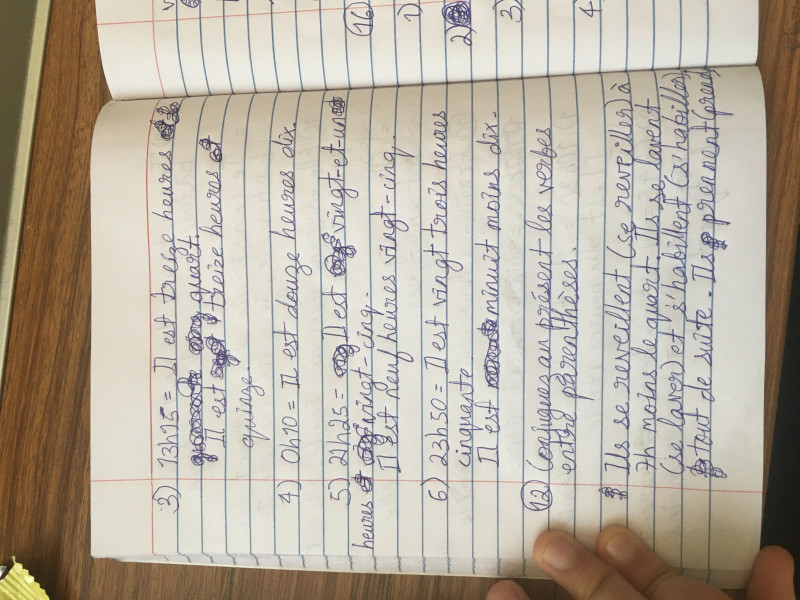 16
1)
2)
3)
4
3) 13h15 = Il est treize heures
quart.
Il est treize heures
quinze.
4) 0h10 = Il est douze heures dix.
5) 21h25 = Il est vingt-et-un
heures vingt-cinq.
Il est neuf heures vingt-cinq.
6) 23h50 = Il est vingt trois heures
cinquante
Il est minuit moins dix.
12 Conjugues au présent les verbes
entre parenthèses.
Ils se reveillent (se reveiller) à
7h moins le quart. Ils se lavent
(se laver) et s'habillent (s'habiller)
tout de suite. Ils prennent (prend